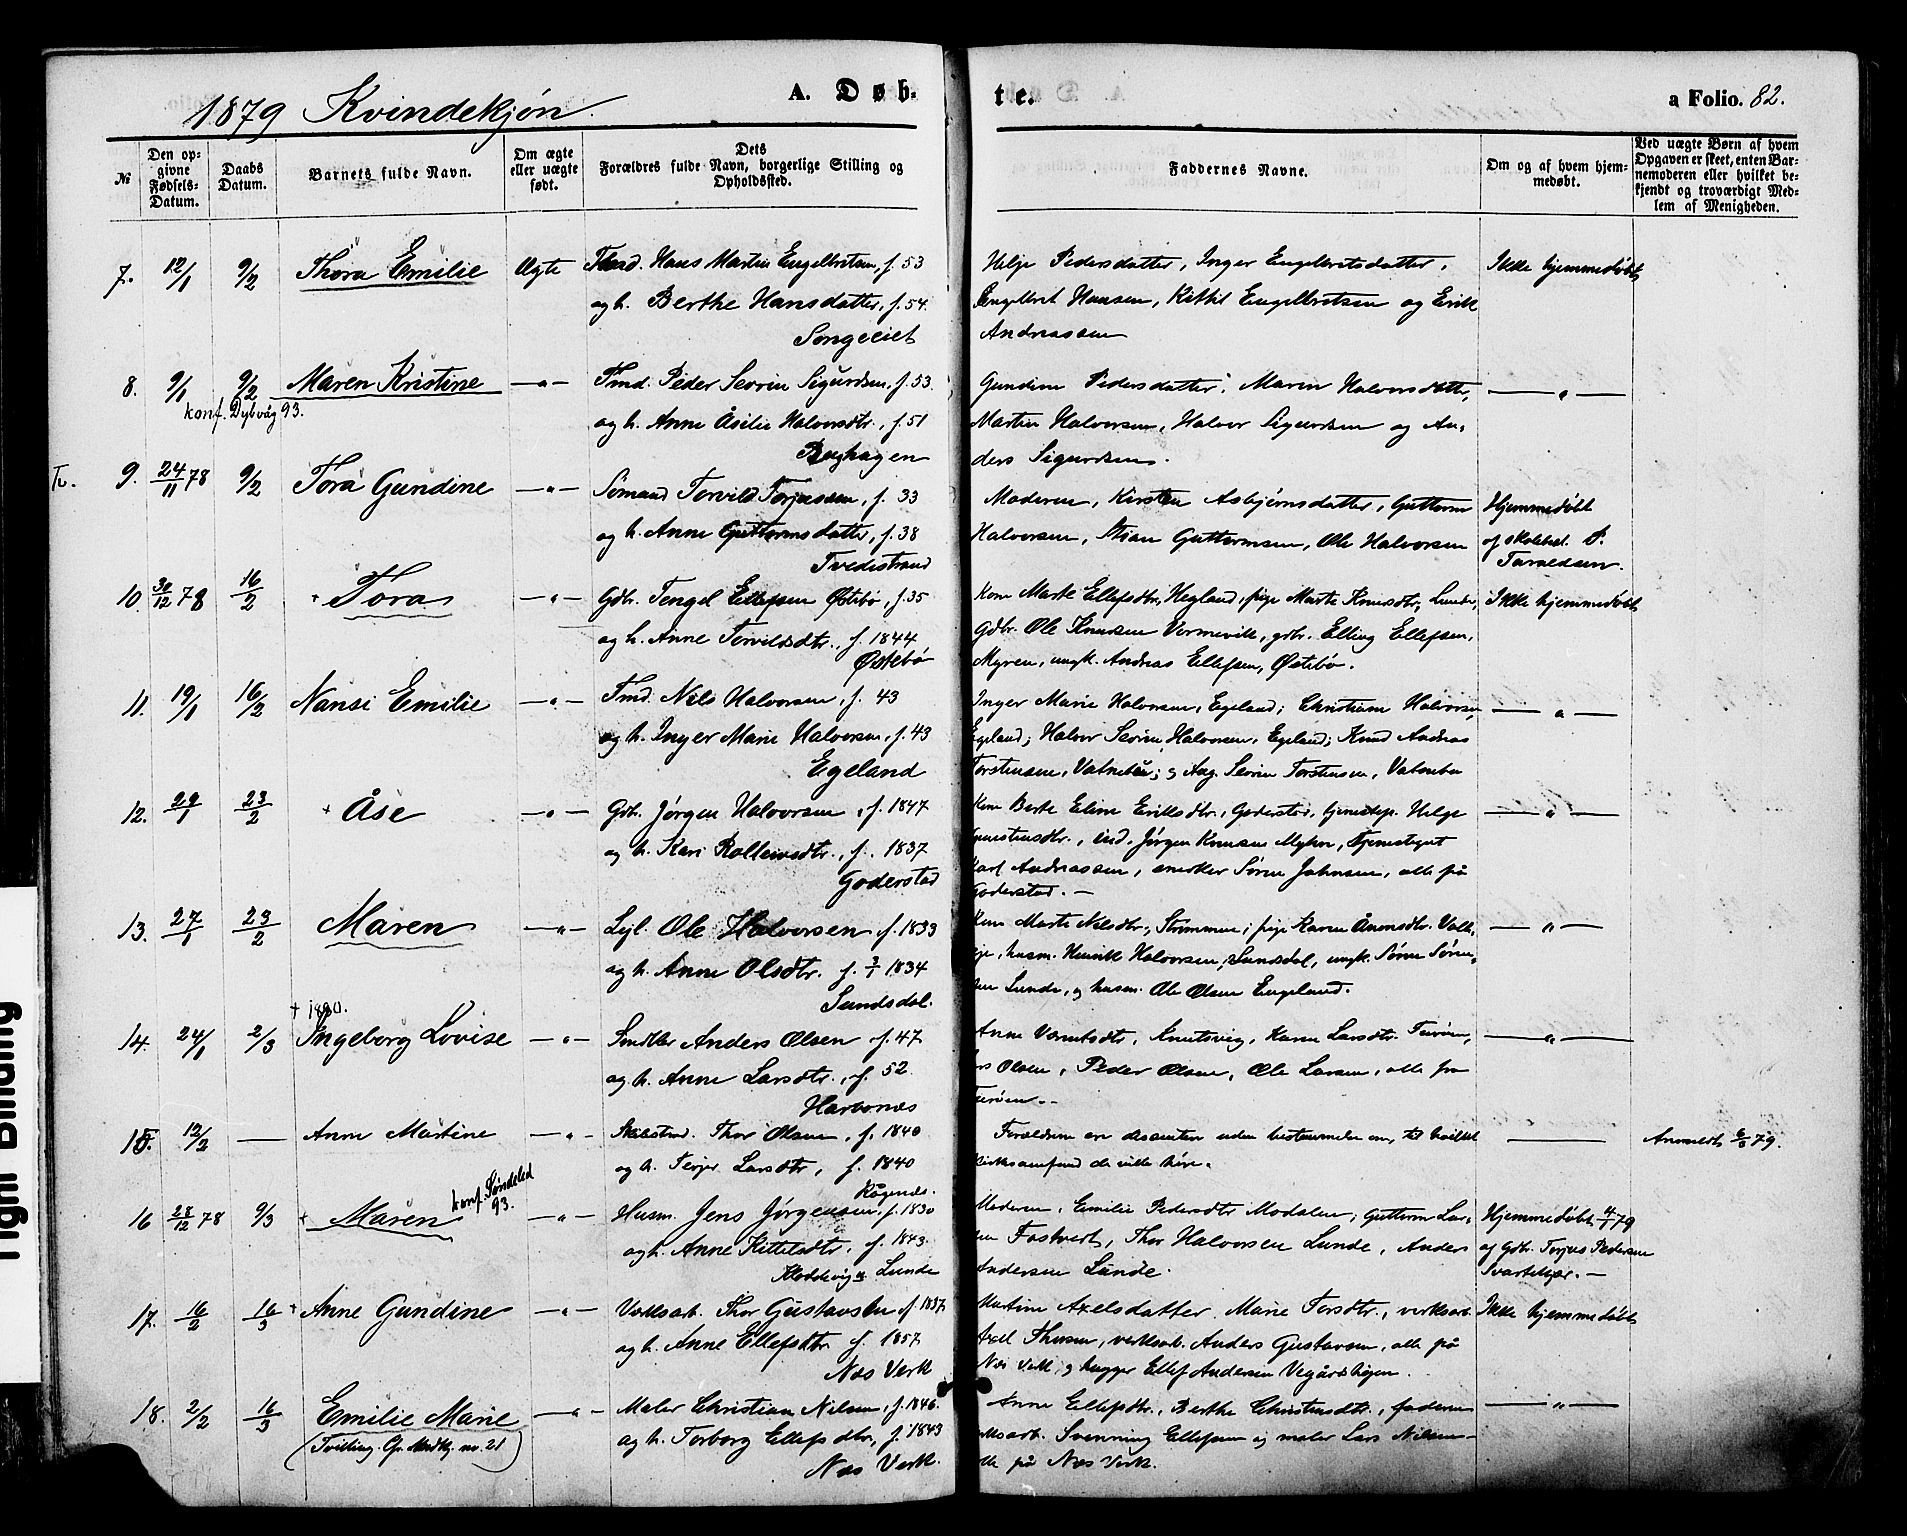 1879 Kvindekjøn.
A. Døbte.
a Folio. 82.
№
Den opgivne Fødsels-Datum.
Daabs Datum.
Barnets fulde Navn.
Om ægte eller uægte født.
Dets Forældres fulde Navn, borgerlige Stilling og Opholdssted.
Faddernes Navne.
Om og af hvem hjemmedøbt.
Ved uægte Børn af hvem Opgaven er skeet, enten Barnemoderen eller hvilket bekjendt og troværdigt Medlem af Menigheden.
7. 12/1 9/2 Thora Emilie Ægte Hans Martin Engelbretsen, f. 53
og h. Berthe Hansdatter, f. 54.
Songeeiet
Helje Pedersdatter, Inger Engelbretsdatter,
Engelbret Hansen, Kittil Engelbretsen og Erik
Andreassen
Ikke hjemmedøbt
8. 9/1 9/2 Maren Kristine —"— Tmd. Peder Severin Sigurdsen, f. 53.
konf. Dybvåg 93.
og h. Anne Åsilie Halvorsdtr., f. 51
Gundine Pedersdatter, Maren Halvorsdatter,
Martin Halvorsen, Halvor Sigurdsen og An-
ders Sigurdsen.
—"—
Tv. 9. 24/11 78 9/2 Tora Gundine —"— Sømand Torvild Torjussen, f. 33
og h. Anne Guttormsdatter, f. 38
Tvedestrand
Moderen, Kirsten Asbjørnsdatter, Guttorm
Halvorsen, Stian Guttormsen, Ole Halvorsen
Hjemmedøbt
af skolehol. P.
Taraldsen.
10. 30/12 78 16/2 Tora —"— Gdbr. Tengel Ellefsen Østebø, f. 35
og h. Anne Torvildsdtr., f. 1844
Østebø
Kone Marte Ellefsdtr, Hegland, pige Marte Knudsdtr, Lunde,
Gdbr. Ole Knudsen Vormevik, gdbr. Elling Ellefsen,
Myren, ungk. Andreas Ellefsen, Østebø.
Ikke hjemmedøbt
11. 19/1 16/2 Nansi Emilie —"— Tmd. Nils Halvorsen, f. 43
og h. Inger Marie Halvorsen, f. 43
Egeland
Inger Marie Halvorsen, Egeland; Christiane Halvorsen,
Egeland; Halvor Severin Halvorsen, Egeland; Knud Andreas
Torstensen, Vatnebu; og Aag. Severin Torstensen, Vatnebu
—"—
12. 29/1 23/2 Åse —"— Gdb. Jørgen Halvorsen, f. 1847
og h. Kari Rolleivsdtr., f. 1837
Goderstad
Kone Berte Eline Eriksdtr., Goderstad, tjenestep. Helge
ind. Jørgen Knudsen Myhre, Tjenestegut
Karl Andreassen, snerker Søren Johnsen, alle på
Goderstad. —
—"—
13. 27/1 23/2 Maren —"— Lejl. Ole Halvorsen f. 1833
og h. Anne Olsdtr. f. 3/1 1834
Sundsdal.
Kone Marte Nilsdtr., Strømmen; pige Karen Ånonsdtr. Valle-
husm. Henrik Halvorsen, Sundsdal, ungk. Søren Søren-
sen Lunde, og husm. Ole Olsen Engeland.
—"—
† 1880.
14. 24/1 2/3 Ingeborg Lovise —"— Anders Olsen f. 47
og h. Anne Larsdtr., f. 52.
Anne Knutsvig, Karen Larsdtr.
Lars Olsen, Peder Olsen, Ole Larsen, alle fra
—"—
15. 12/2 — Anne Martine —"— Thor Olsen, f. 1840
og h. Terjer Larsdtr, f. 1840
Forældrene er dissentere uden bestemmelse om, til hvilket
kirkesamfund de ville høre.
— Anmeldt 6/3 79.
16 28/12 78 9/3 Maren konf. Søndeled
93.
—"— Husm. Jens Jørgensen, f. 1830
og h. Anne Kittelsdtr. f. 1843.
Kloddevig u. Lunde
Moderen, Emilie Pedersdtr Modalen, Guttorm Lar-
sen Fostvert, Thor Halvorsen Lunde, Anders
Andersen Lunde.
Hjemmedøbt 4/1 79
af Gdbr. Torjus Pedersen
Svartekjær. —
17. 16/2 16/3 Anne Gundine —"— Verksarb. Thor Gustavsen f. 1857
og h. Anne Ellefsdtr f. 1857
Næs Verk
Martine Axelsdatter, Marie Torsdtr., verksarb.
Axel Thorsen, verksarb. Anders Gustavsen, alle på
Næs Verk, og hugger Ellef Andersen Vegårdsheien.
Ikke hjemmedøbt
18. 2/2 16/3 Emilie Marie —"— Maler Christian Nilsen, f. 1846.
(Tvilling. Cfr. Mandkj. no. 21)
og h. Torborg Ellefsdtr, f. 1843
Næs Verk.
Anne Ellefsdtr., Berthe Christensdtr., faderen
verksarb. Svenning Ellefsen og maler Lars Nilsen—
alle på Næs Verk.
—"—
Tight Binding